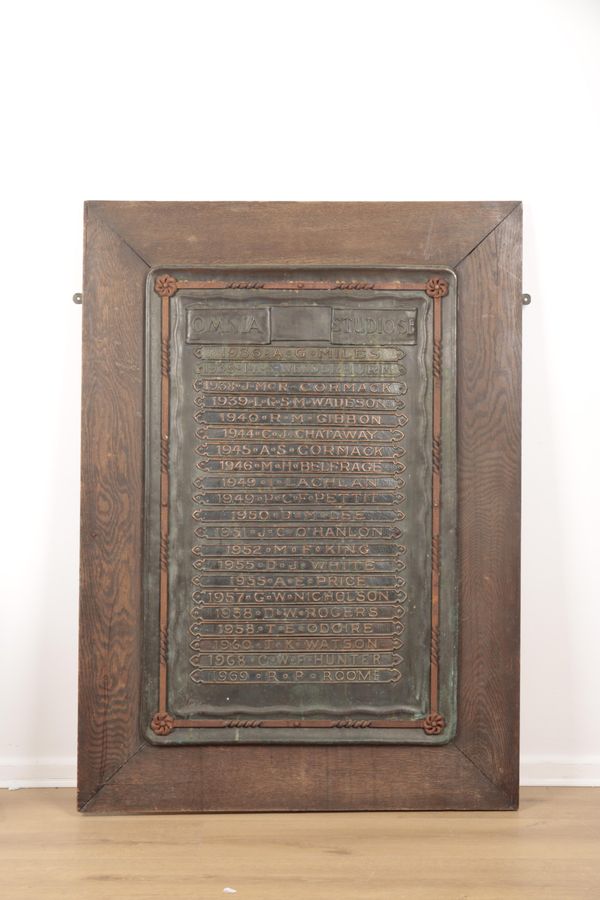 OMNIA STUDIOSE
1936·A·G·MILES
1938·J·MCR·CORMACK
1939·L·R·S·M·WADESON
1940·R·M·GIBBON
1944·C·J·CHATAWAY
1945·A·S·CORMACK
1946·M·H·BELFRAGE
1949·I·LACHLAN
1949·P·C·F·PETTIT
1950·D·M·DEE
1951·J·C·O'HANLON
1952·M·F·KING
1955·D·J·WHITE
1955·A·E·PRICE
1957·G·W·NICHOLSON
1958·D·W·ROGERS
1958·T·E·ODOIRE
1960·J·K·WATSON
1968·C·W·F·HUNTER
1969·R·P·ROOME